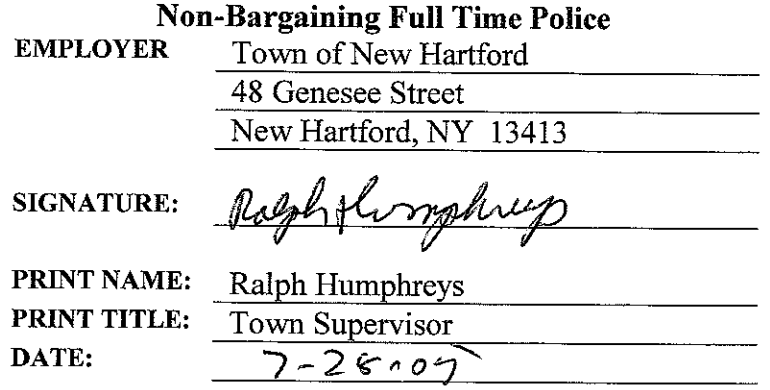 Non-Bargaining Full Time Police
EMPLOYER Town of New Hartford
48 Genesee Street
New Hartford, NY 13413
SIGNATURE: Ralph Humphreys
PRINT NAME: Ralph Humphreys
PRINT TITLE: Town Supervisor
DATE: